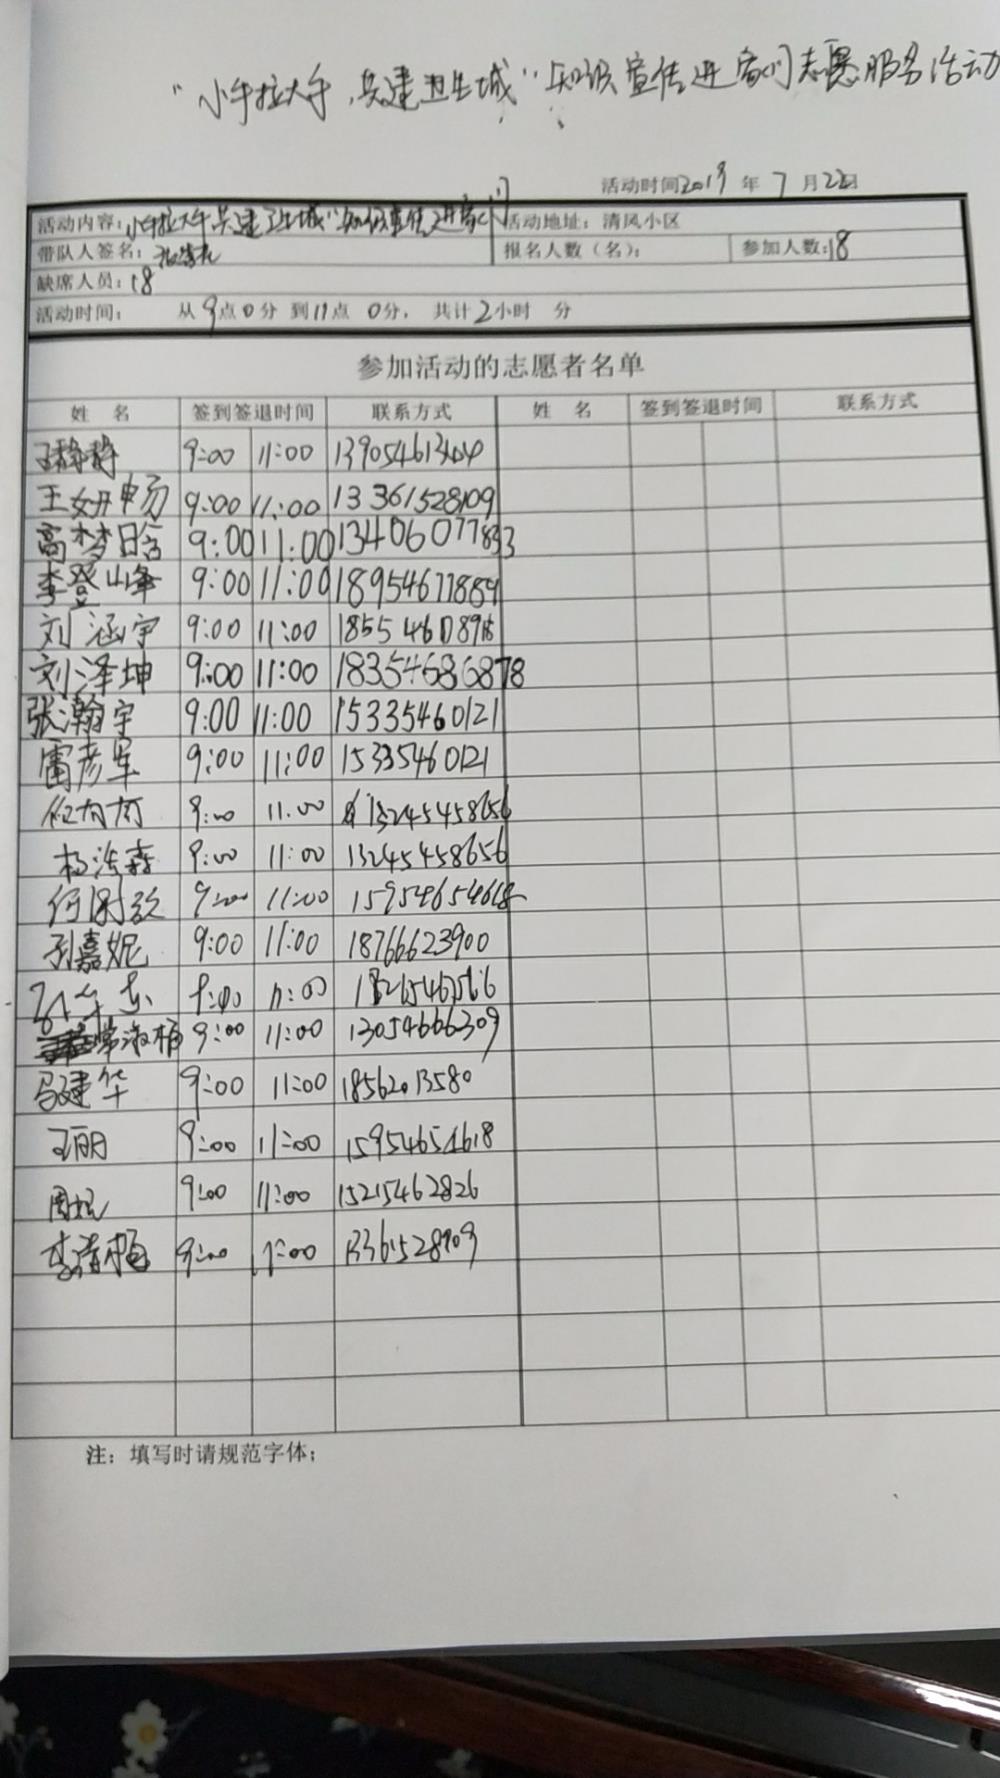 “小手拉大手,共建卫生城”知识宣传进家门志愿服务活动
活动时间2019年7月22日
活动内容:小手拉大手共建卫生城”知识宣传进家门 活动地址:清风小区
带队人签名: 报名人数(名): 参加人数:18
缺席人员:18
活动时间: 从9点0分到11点0分, 共计2小时 分
参加活动的志愿者名单
姓 名 签到签退时间 联系方式 姓 名 签到签退时间 联系方式
静静 9:00 11:00
王妍申易 9:00 11:00 13361528109
高梦晗 9:00 11:00 13406077833
李登峰 9:00 11:00 18954677889
刘涵宇 9:00 11:00
刘泽坤 9:00 11:00 18354686878
张瀚宇 9:00 11:00 15335460121
雷彦军 9:00 11:00 15335460121
9:00 11:00 13245458656
杨浩森 9:00 11:00 13245458656
何 9:00 11:00
孙嘉妮 9:00 11:00 18766623900
9:00 11:00
常淑梅 9:00 11:00 13054666309
马建华 9:00 11:00 18562013580
王丽 9:00 11:00 15954654618
周 9:00 11:00 15215462826
李 9:00 11:00
注:填写时请规范字体;